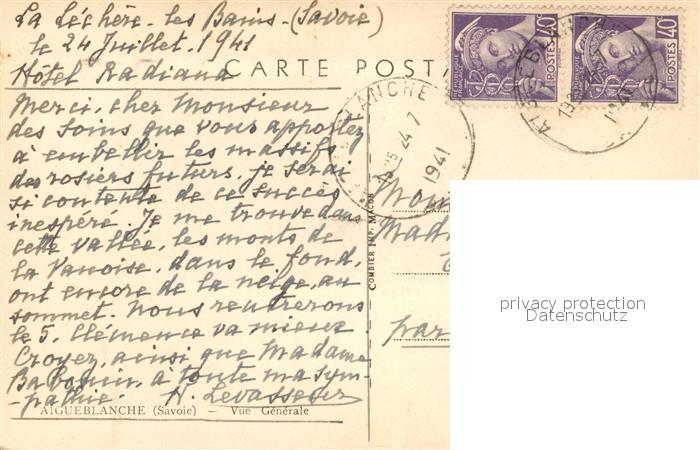 La Léchère-les Bains-(Savoie)
le 24 Juillet, 1941
Hôtel Radiana
CARTE POSTA
Merci, cher Monsieur
des soins que vous apportez
à embellir les massifs
des rosiers futurs, je serai
si contente de ce succès
inespéré. Je me trouve dans
cette vallée, les monts de
la Vanoise, dans le fond,
ont encore de la neige, au
sommet. Nous rentrerons
le 5, Clémence va mieux
Croyez, ainsi que Madame
à toute ma sym-
-pathie. H. Levasseur
AIGUEBLANCHE (Savoie) - Vue Générale
COMBIER IMP. MACON
40c
POSTES
40c
POSTES
24 7
1941
par
privacy protection
Datenschutz